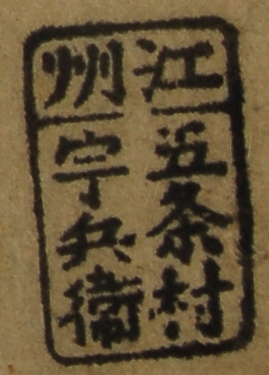 江州
五条村
宇兵衛